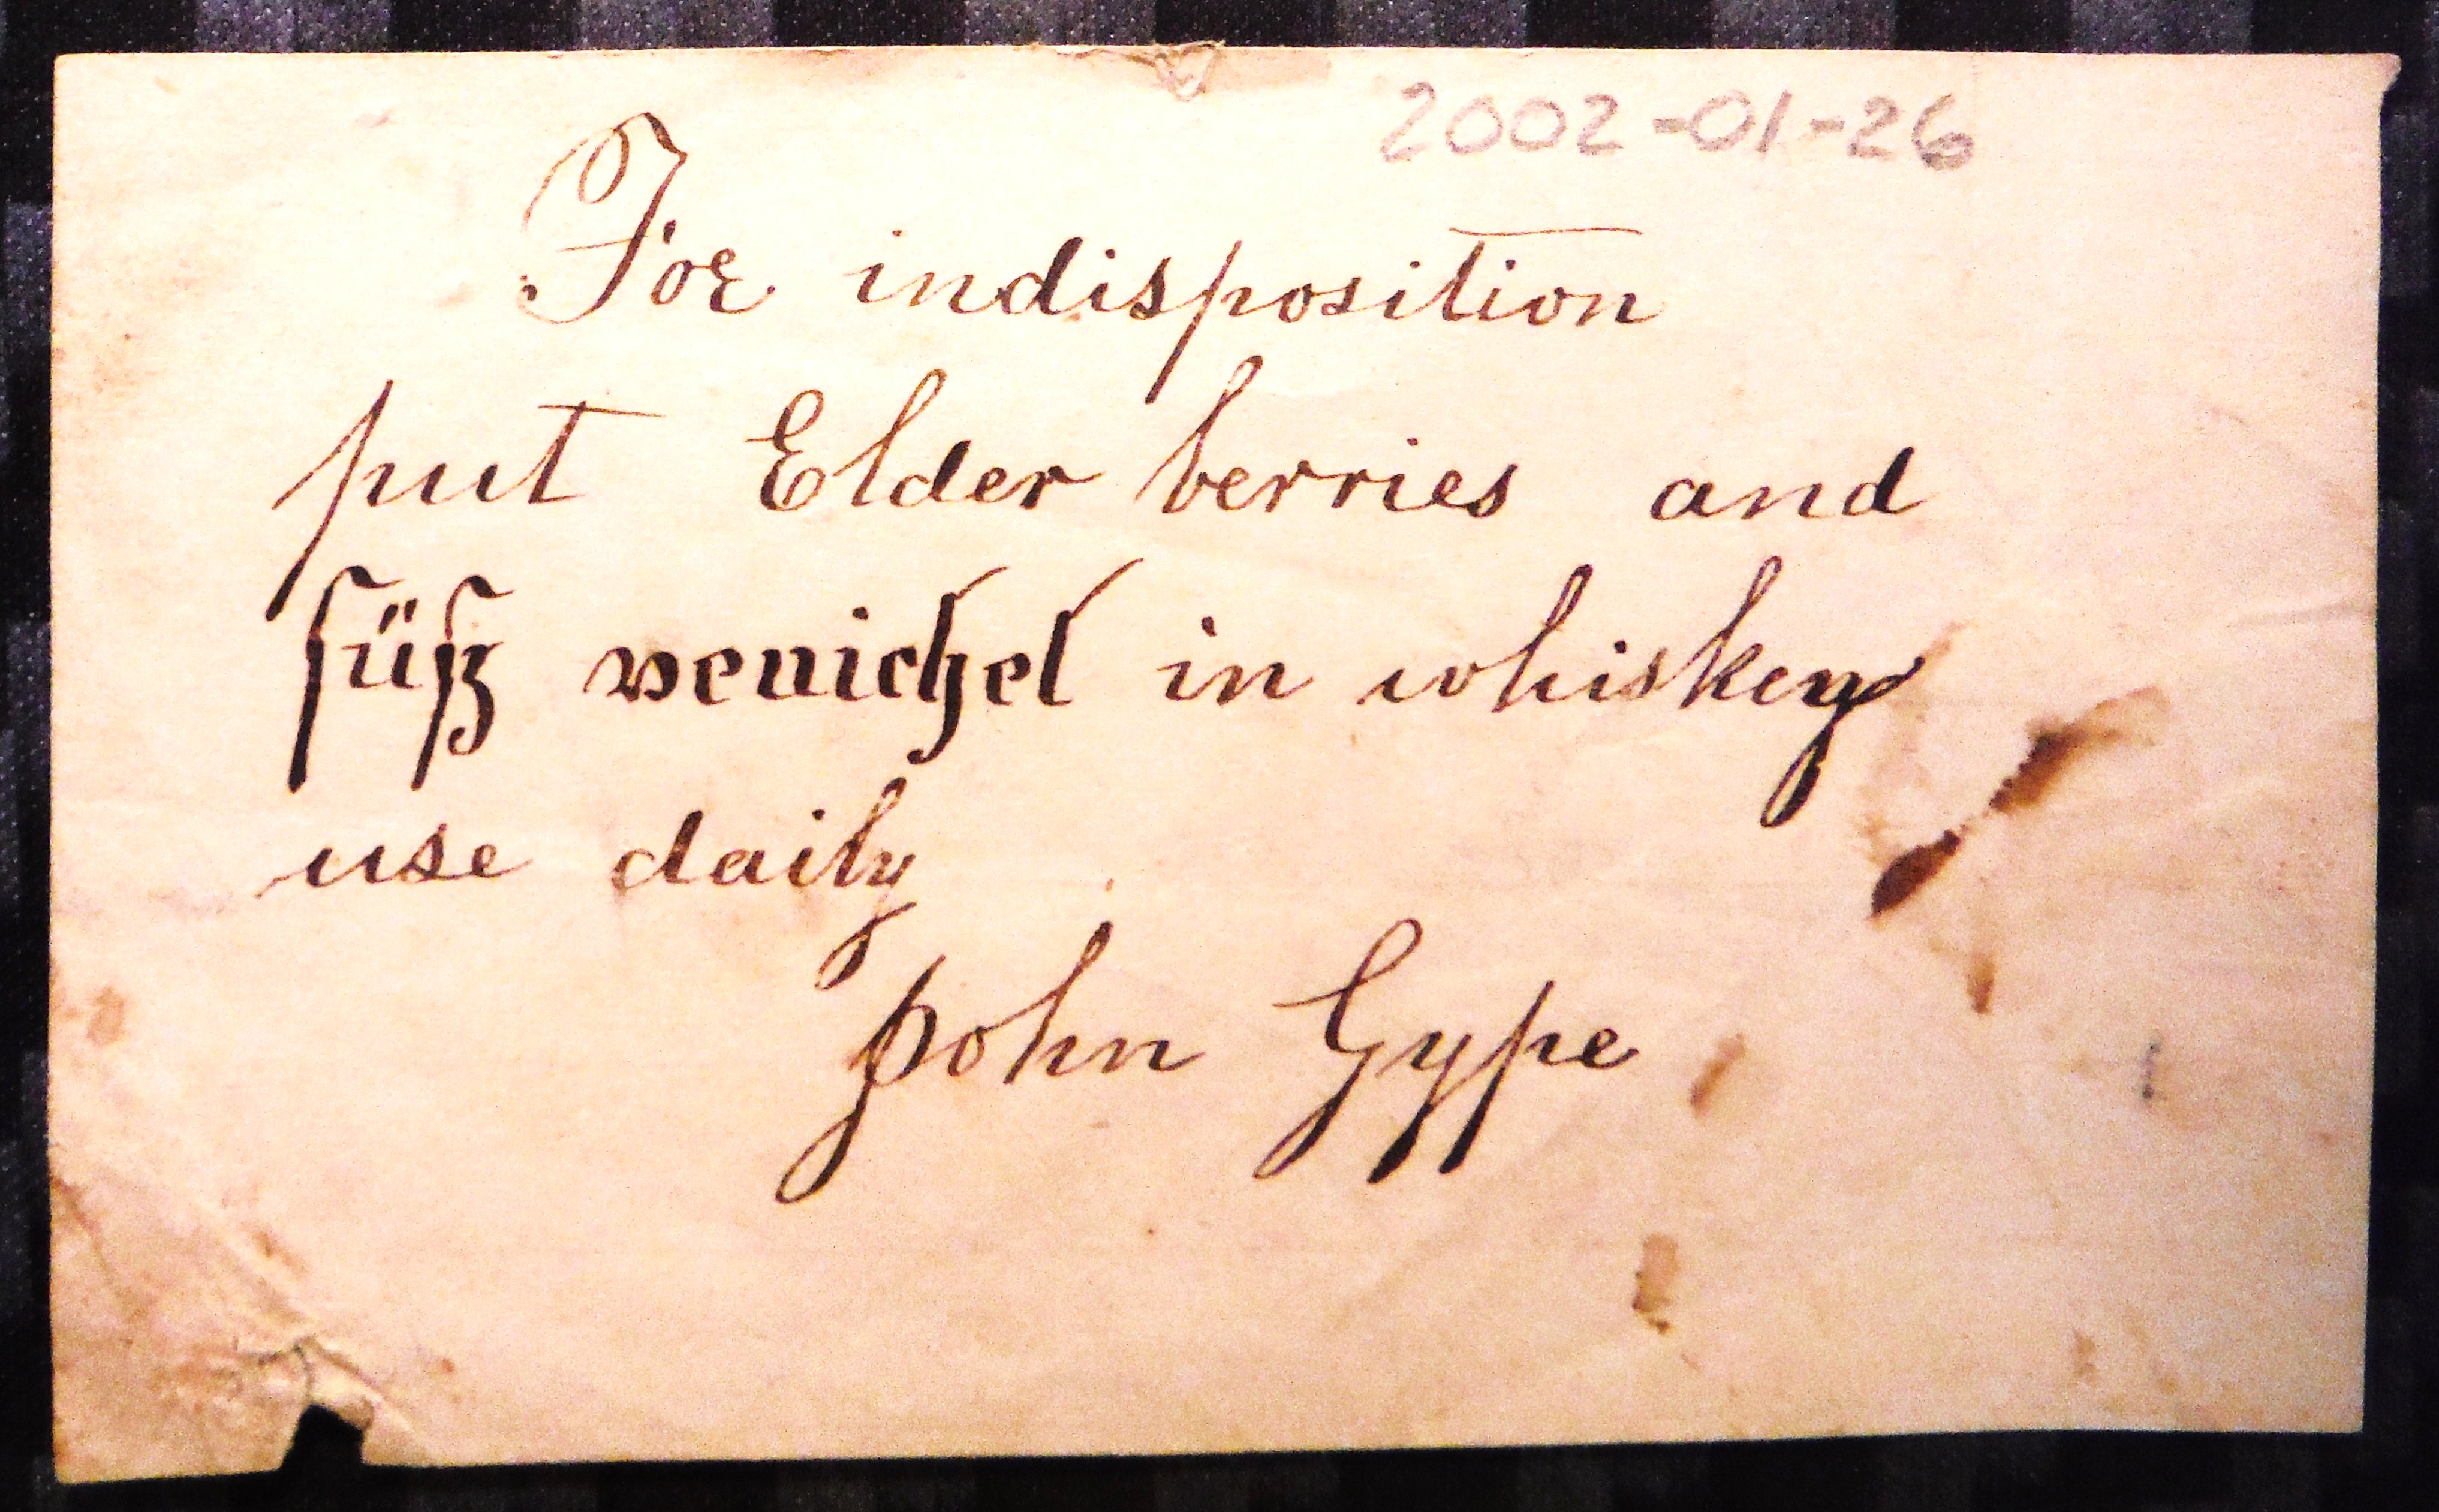 2002-01-26
For indisposition
put Elder berries and
süß wenichel in whiskey
use daily
John Gype